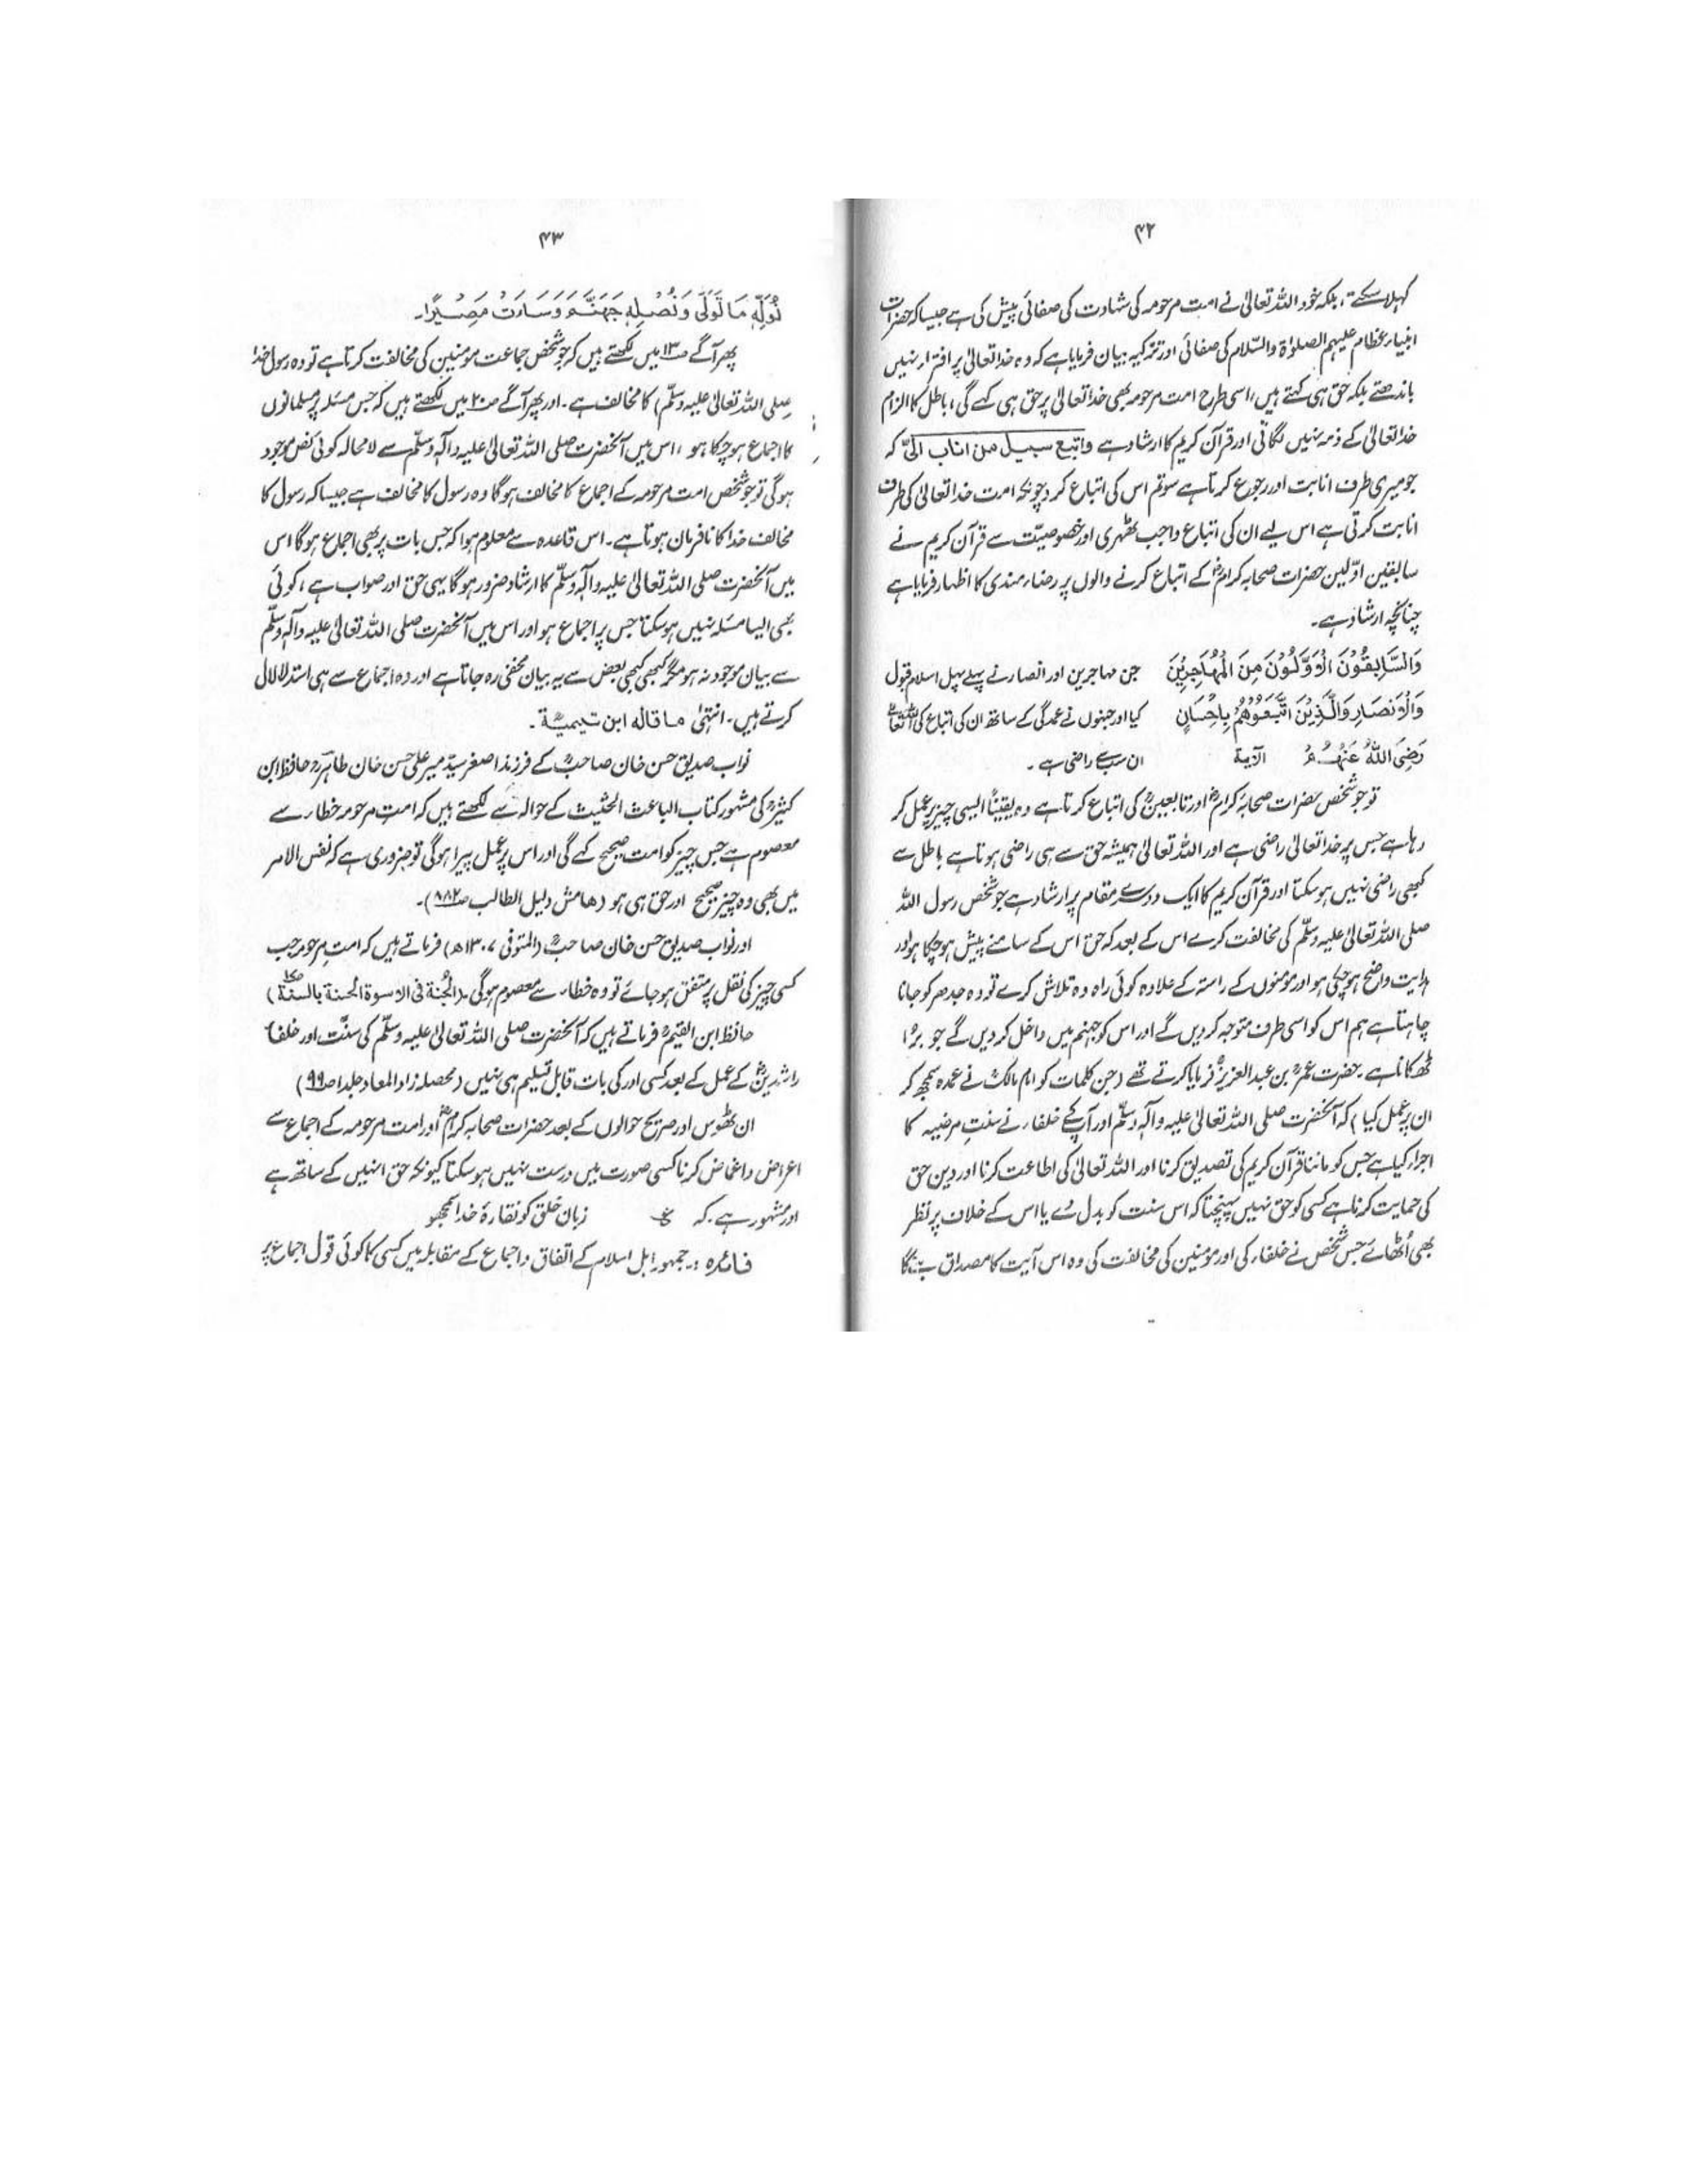 ۴۲
کہلا سکتے، بلکہ خود اللہ تعالیٰ نے امت مرحومہ کی شہادت کی صفائی پیش کی ہے جیسا کہ حضرات
انبیاء عظام علیہم الصلوٰۃ والسّلام کی صفائی اور تزکیہ بیان فرمایا ہے کہ وہ خدا تعالیٰ پر افتراء نہیں
باندھتے بلکہ حق ہی کہتے ہیں، اسی طرح امت مرحومہ بھی خدا تعالیٰ پر حق ہی کہے گی، باطل کا الزام
خدا تعالیٰ کے ذمہ نہیں لگائی اور قرآن کریم کا ارشاد ہے واتبع سبیل من اناب الیّ کہ
جو میری طرف انابت اور رجوع کرتا ہے سو تم اس کی اتباع کرو چونکہ امت خدا تعالیٰ کی طرف
انابت کرتی ہے اس لیے ان کی اتباع واجب ٹھہری اور خصوصیّت سے قرآن کریم نے
سابقین اوّلین حضرات صحابہ کرامؓ کے اتباع کرنے والوں پر رضاء مندی کا اظہار فرمایا ہے
چنانچہ ارشاد ہے۔
وَالسَّابِقُوْنَ الْاَوَّلُوْنَ مِنَ الْمُهَاجِرِيْنَ جن مہاجرین اور انصار نے پہلے پہل اسلام قبول
وَالْاَنْصَارِ وَالَّذِيْنَ اتَّبَعُوْهُمْ بِاِحْسَانٍ کیا اور جنہوں نے عمدگی کے ساتھ ان کی اتباع کی اللہ تعالیٰ
رَضِيَ اللّٰهُ عَنْهُمْ الآیۃ ان سب سے راضی ہے۔
تو جو شخص حضرات صحابہ کرامؓ اور تابعینؒ کی اتباع کرتا ہے وہ یقیناً ایسی چیز پر عمل کر
رہا ہے جس پر خدا تعالیٰ راضی ہے اور اللہ تعالیٰ ہمیشہ حق سے ہی راضی ہوتا ہے باطل سے
کبھی راضی نہیں ہو سکتا اور قرآن کریم کا ایک دوسرے مقام پر ارشاد ہے جو شخص رسول اللہ
صلی اللہ تعالیٰ علیہ وسلّم کی مخالفت کرے اس کے بعد کہ حق اس کے سامنے پیش ہو چکا ہو اور
ہدایت واضح ہو چکی ہو اور مومنوں کے راستہ کے علاوہ کوئی راہ وہ تلاش کرے تو وہ جدھر کو جانا
چاہتا ہے ہم اس کو اسی طرف متوجہ کر دیں گے اور اس کو جہنم میں داخل کر دیں گے جو بُرا
ٹھکانا ہے۔ حضرت عمرؒ بن عبد العزیزؒ فرمایا کرتے تھے (جن کلمات کو امام مالکؒ نے عمدہ سمجھ کر
ان پر عمل کیا) کہ آنحضرت صلی اللہ تعالیٰ علیہ وآلہٖ وسلّم اور آپ کے خلفاء نے سنتِ مرضیہ کا
اجراء کیا ہے جس کو ماننا قرآن کریم کی تصدیق کرنا اور اللہ تعالیٰ کی اطاعت کرنا اور دین حق
کی حمایت کرنا ہے کسی کو حق نہیں پہنچتا کہ اس سنت کو بدل دے یا اس کے خلاف پر نظر
بھی اُٹھائے جس شخص نے خلفاء کی اور مؤمنین کی مخالفت کی وہ اس آیت کا مصداق بنے گا
۴۳
نُوَلِّهٖ مَا تَوَلّٰى وَنُصْلِهٖ جَهَنَّمَ وَسَاءَتْ مَصِيْرًا۔
پھر آگے ص۱۳ میں لکھتے ہیں کہ جو شخص جماعت مؤمنین کی مخالفت کرتا ہے تو وہ رسول خدا
(صلی اللہ تعالیٰ علیہ وسلّم) کا مخالف ہے۔ اور پھر آگے ص۲۰ میں لکھتے ہیں کہ جس مسئلہ پر مسلمانوں
کا اجماع ہو چکا ہو، اس میں آنحضرت صلی اللہ تعالیٰ علیہ وآلہٖ وسلّم سے لا محالہ کوئی نص موجود
ہو گی تو جو شخص امت مرحومہ کے اجماع کا مخالف ہو گا وہ رسول کا مخالف ہے جیسا کہ رسول کا
مخالف خدا کا نافرمان ہوتا ہے۔ اس قاعدہ سے معلوم ہوا کہ جس بات پر بھی اجماع ہو گا اس
میں آنحضرت صلی اللہ تعالیٰ علیہ وآلہٖ وسلّم کا ارشاد ضرور ہو گا یہی حق اور صواب ہے، کوئی
بھی ایسا مسئلہ نہیں ہو سکتا جس پر اجماع ہو اور اس میں آنحضرت صلی اللہ تعالیٰ علیہ وآلہٖ وسلّم
سے بیان موجود نہ ہو مگر کبھی کبھی بعض سے یہ بیان مخفی رہ جاتا ہے اور وہ اجماع سے ہی استدلال
کرتے ہیں۔ انتہیٰ ما قالہ ابن تیمیۃؒ۔
نواب صدیق حسن خان صاحبؒ کے فرزند اصغر سیّد میر علی حسن خان طاہرؒ حافظ ابن
کثیرؒ کی مشہور کتاب الباعث الحثیث کے حوالہ سے لکھتے ہیں کہ امت مرحومہ خطاء سے
معصوم ہے جس چیز کو امت صحیح کہے گی اور اس پر عمل پیرا ہو گی تو ضروری ہے کہ نفس الامر
میں بھی وہ چیز صحیح اور حق ہی ہو (ھامش دلیل الطالب ص۸۸۲)۔
اور نواب صدیق حسن خان صاحبؒ (المتوفی ۱۳۰۷ھ) فرماتے ہیں کہ امت مرحومہ جب
کسی چیز کی نقل پر متفق ہو جائے تو وہ خطاء سے معصوم ہو گی۔ (الجُنۃ فی الاسوۃ الحسنۃ بالسنۃ)
حافظ ابن القیمؒ فرماتے ہیں کہ آنحضرت صلی اللہ تعالیٰ علیہ وسلّم کی سنّت اور خلفاء
راشدینؓ کے عمل کے بعد کسی اور کی بات قابل تسلیم ہی نہیں (محصلہ زاد المعاد جلد۱ ص۹۹)
ان ٹھوس اور صریح حوالوں کے بعد حضرات صحابہ کرامؓ اور امت مرحومہ کے اجماع سے
اعراض و اغماض کرنا کسی صورت میں درست نہیں ہو سکتا کیونکہ حق انہیں کے ساتھ ہے
اور مشہور ہے۔ کہ ع زبان خلق کو نقارۂ خدا سمجھو
فائدہ :۔ جمہور اہل اسلام کے اتفاق و اجماع کے مقابلہ میں کسی کا کوئی قول اجماع پر